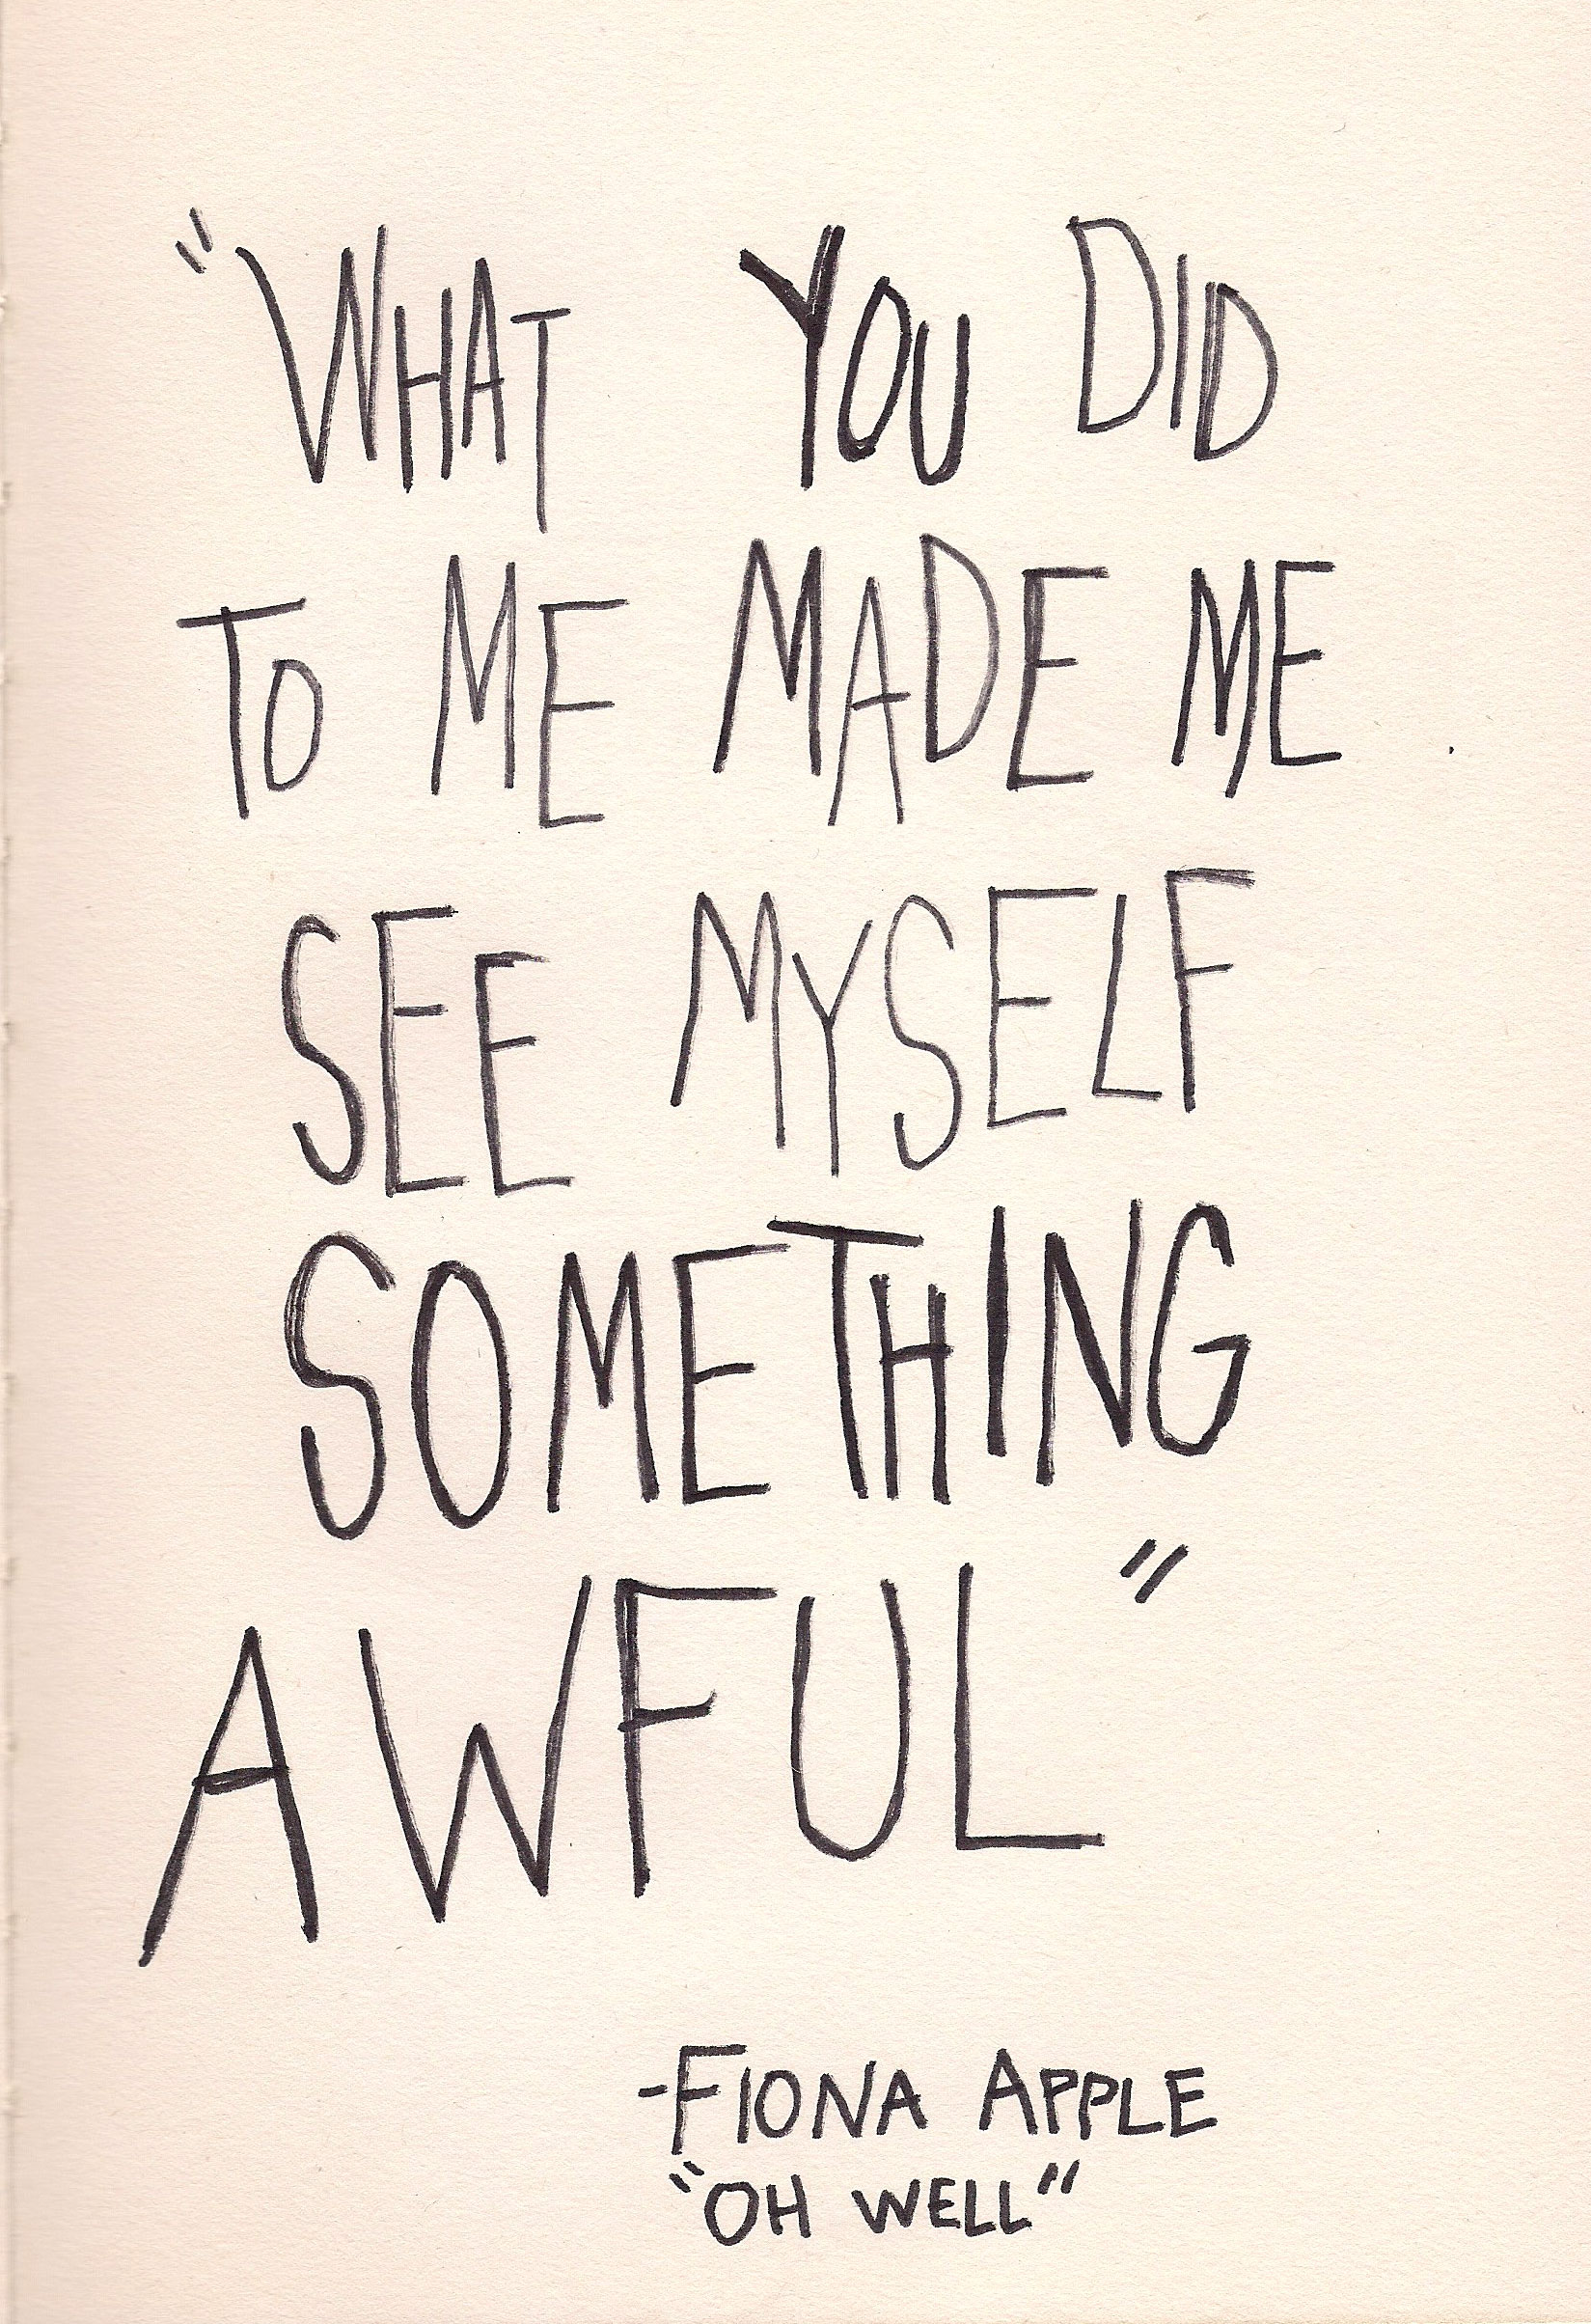 "WHAT YOU DID
TO ME MADE ME
SEE MYSELF
SOMETHING
AWFUL"
-FIONA APPLE
"OH WELL"